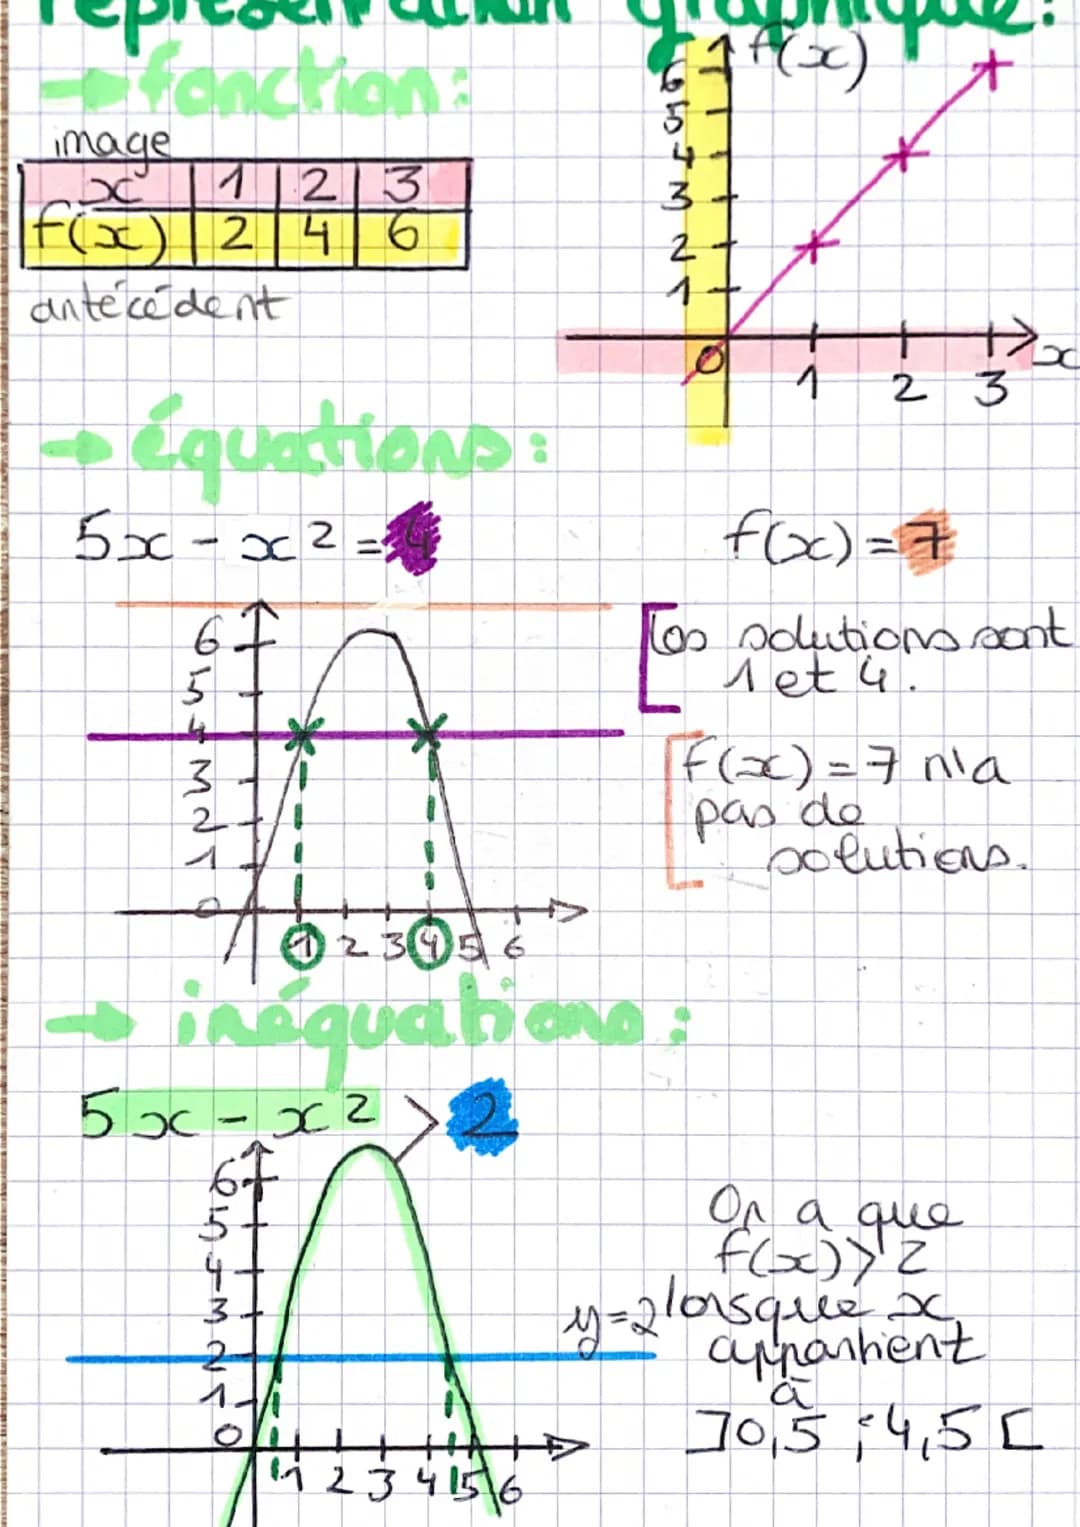 représentation graphique:
→ fonction:
image
x 1 2 3
f(x) 2 4 6
antécédent
f(x)
6
5
4
3
2
1
0
1 2 3
x
→ équations:
5x - x² = 4
f(x) = 7
6
5
4
3
2
1
0
1 2 3 4 5 6
Les solutions sont
1 et 4.
f(x) = 7 n'a
pas de
solutions.
→ inéquations:
5x - x² > 2
6
5
4
3
2
1
0
1 2 3 4 5 6
y=2
On a que
f(x) > 2
lorsque x
appartient
à
]0,5 ; 4,5[